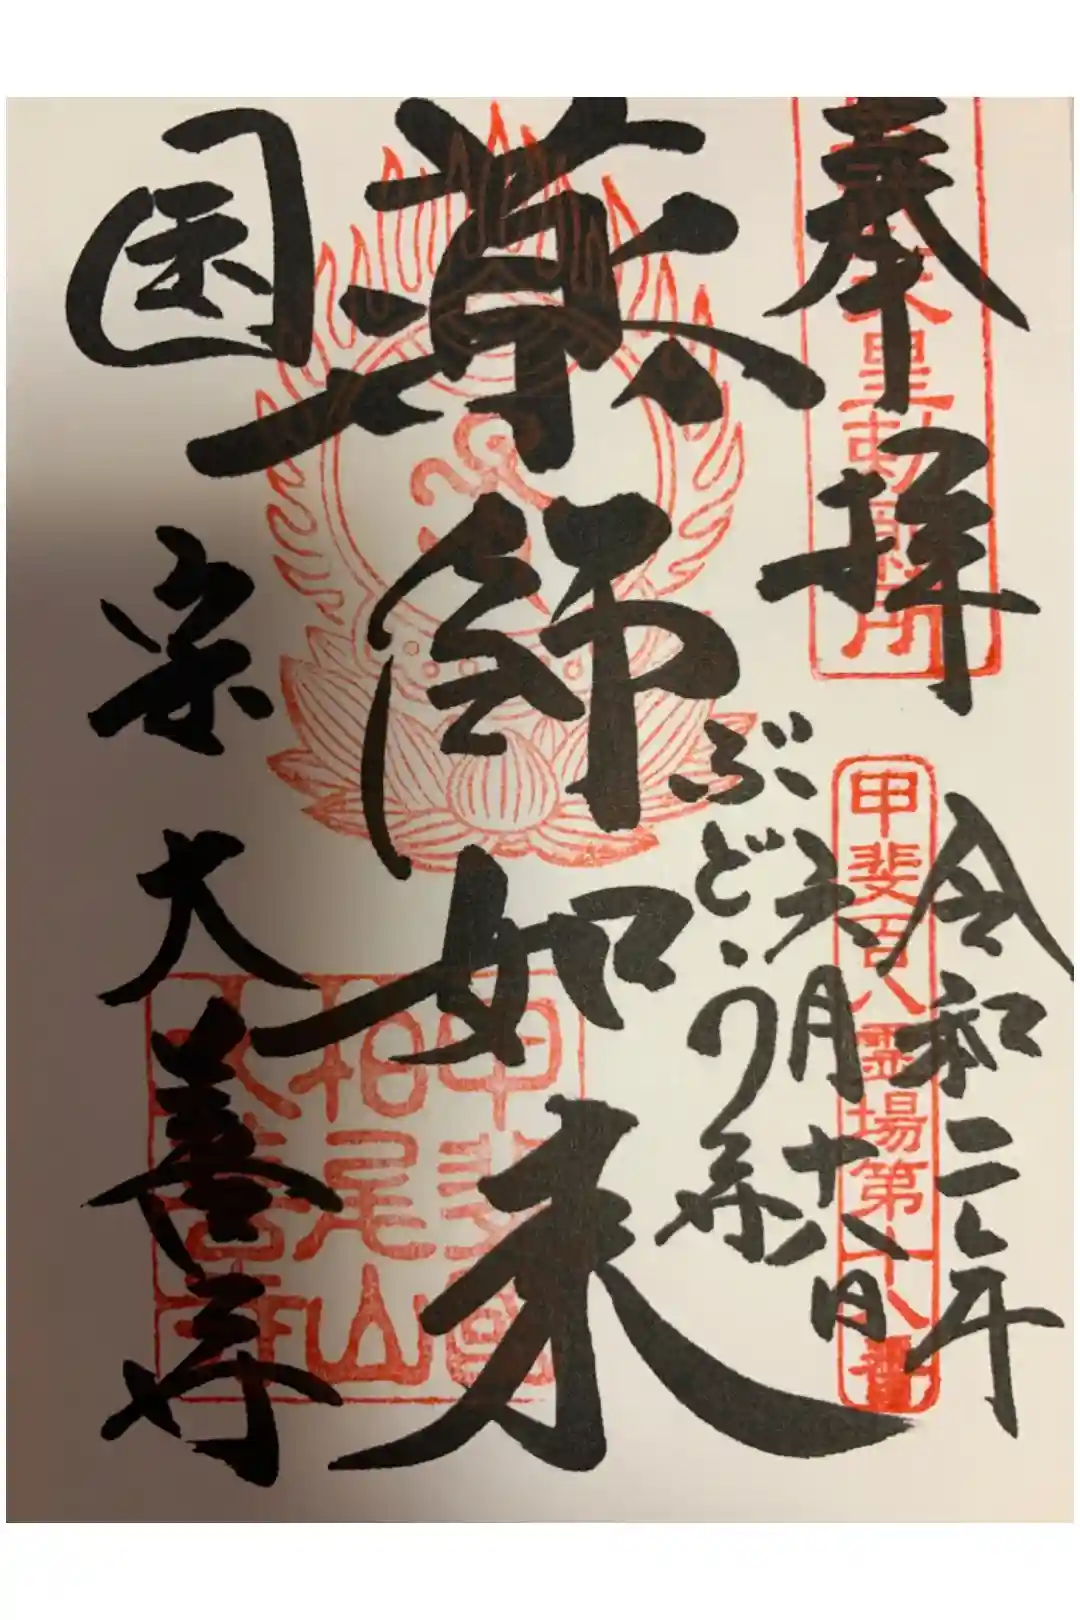 奉拝
天皇勅願所
令和二年
甲斐百八霊場第十八番
六月十八日
ぶどう寺
薬師如来
国宝大善寺
甲斐國
柏尾山
大善寺